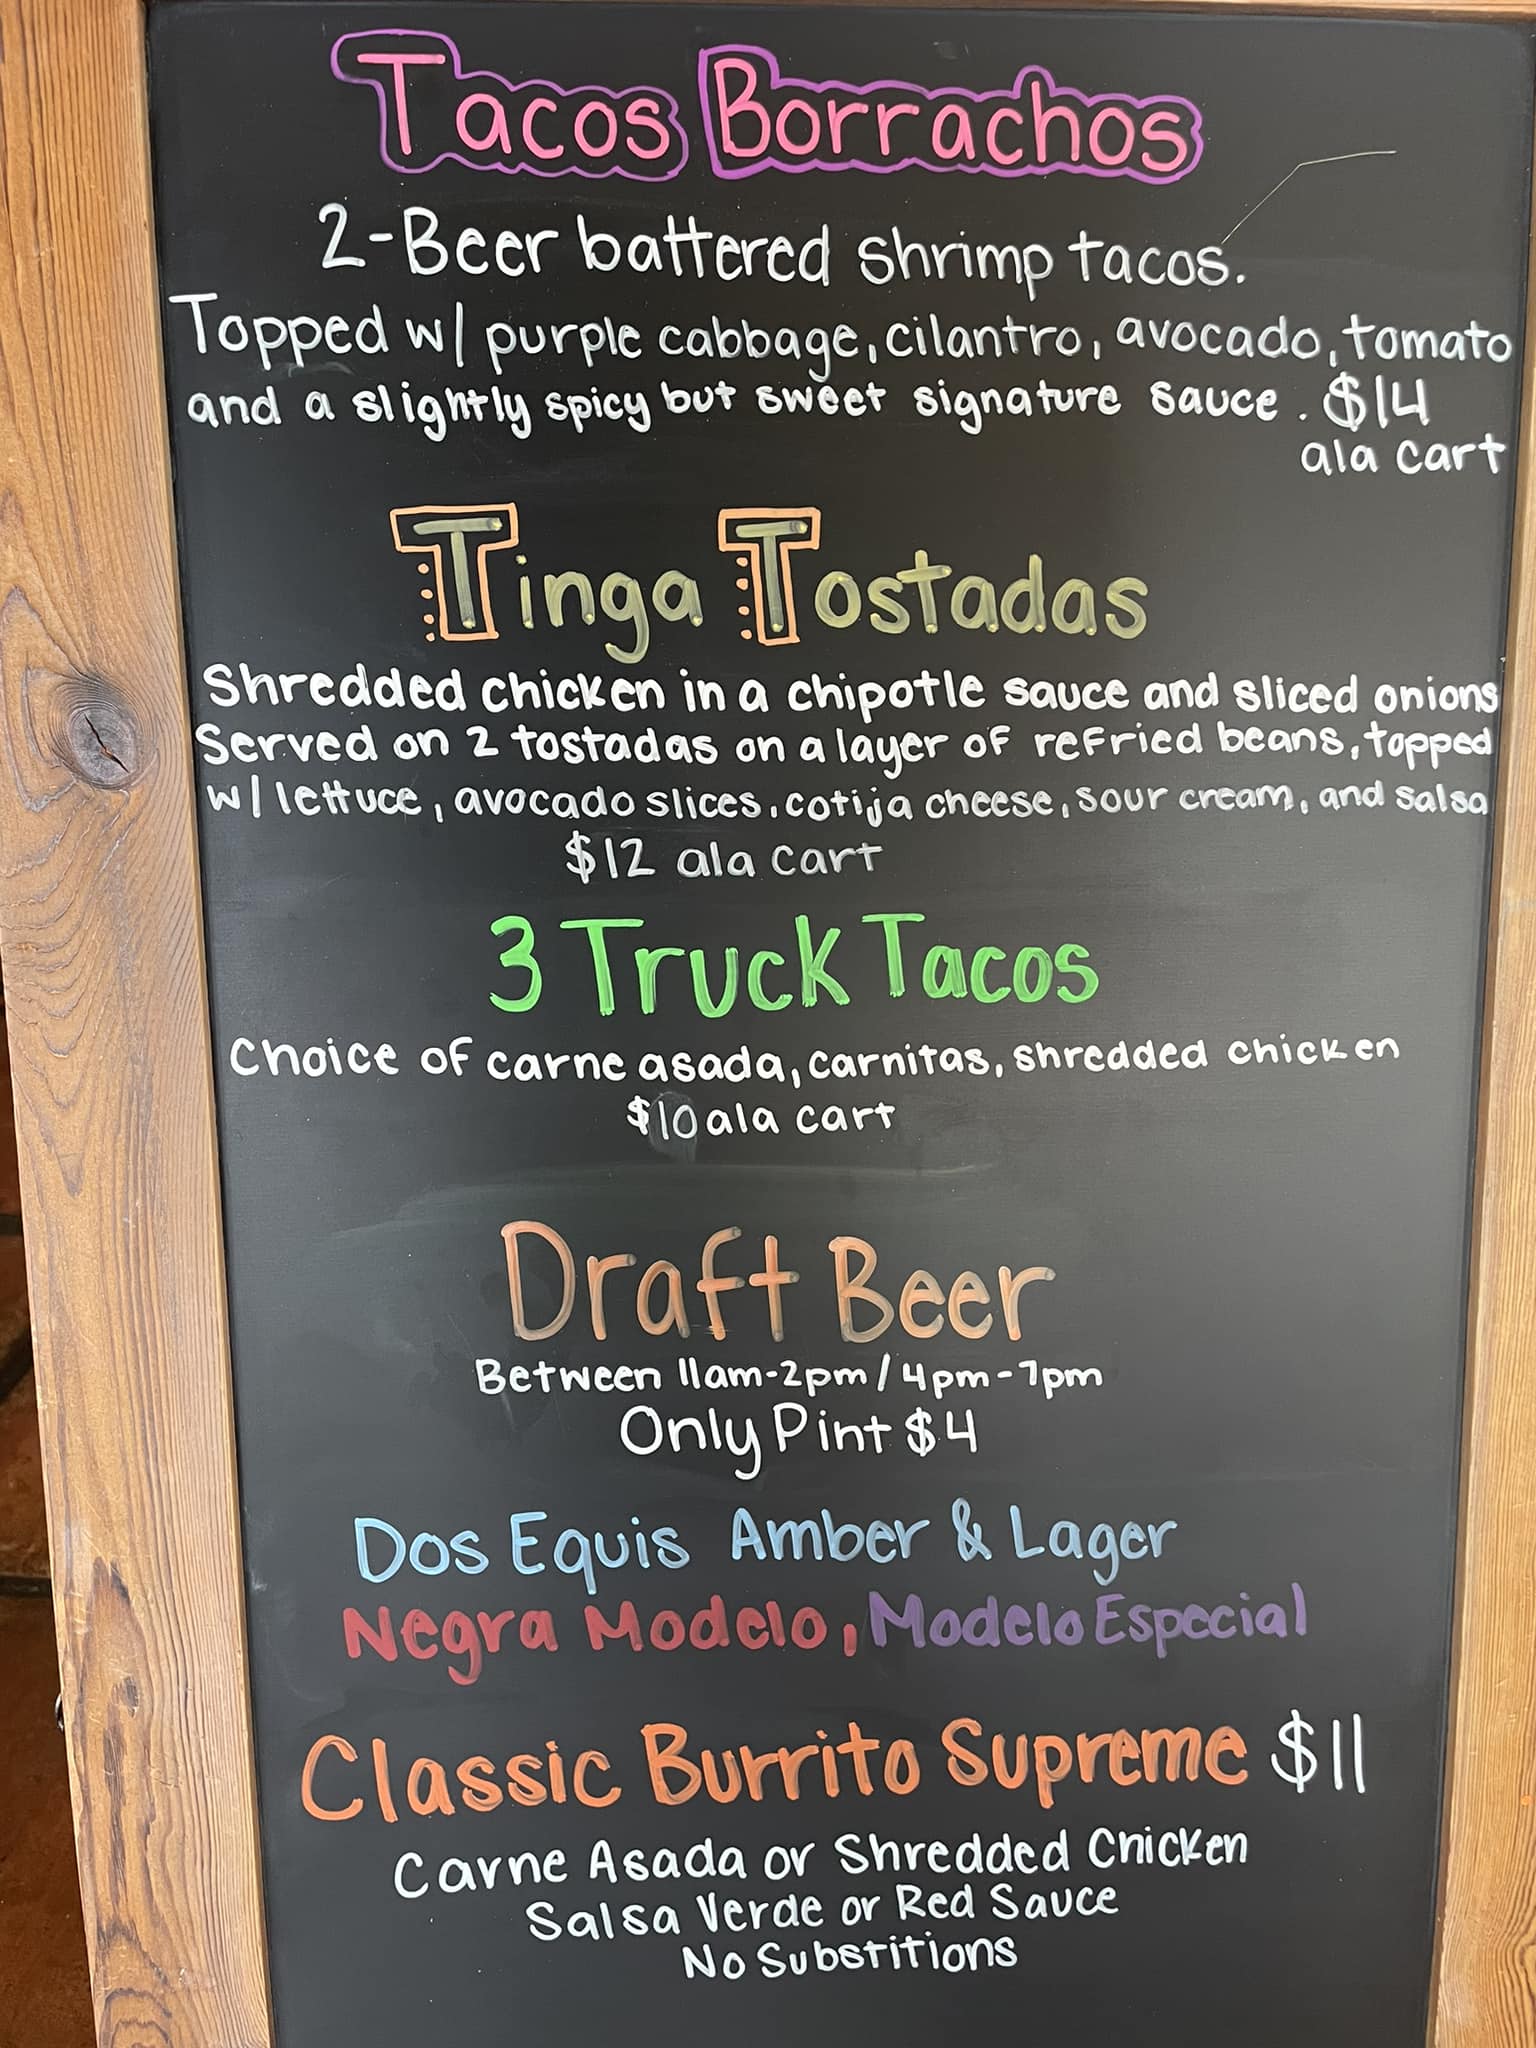 Tacos Borrachos
2-Beer battered shrimp tacos.
Topped w/ purple cabbage, cilantro, avocado, tomato
and a slightly spicy but sweet signature sauce. $14
ala cart
Tinga Tostadas
Shredded chicken in a chipotle sauce and sliced onions
Served on 2 tostadas on a layer of refried beans, topped
w/ lettuce, avocado slices, cotija cheese, sour cream, and salsa
$12 ala cart
3 Truck Tacos
Choice of carne asada, carnitas, shredded chicken
$10 ala cart
Draft Beer
Between 11am-2pm / 4pm-7pm
Only Pint $4
Dos Equis Amber & Lager
Negra Modelo, Modelo Especial
Classic Burrito Supreme $11
Carne Asada or Shredded Chicken
Salsa Verde or Red Sauce
No Substitions